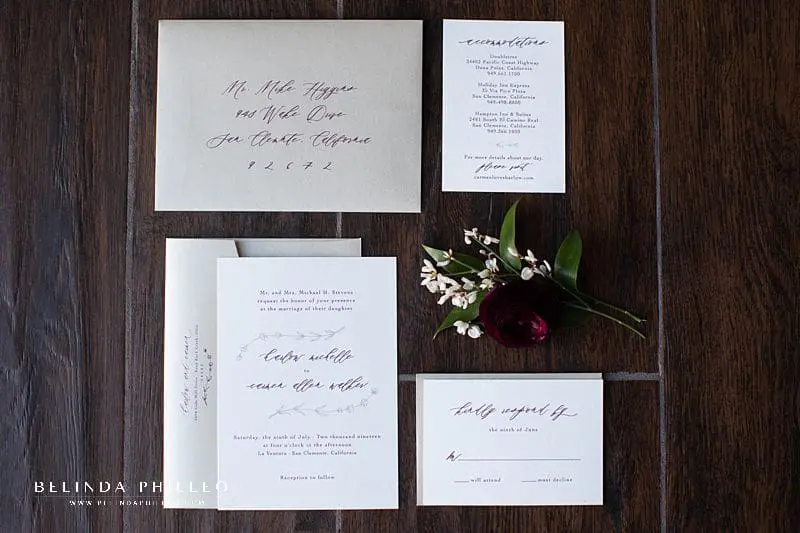 Mr. Mike Higgins
940 Wake Drive
San Clemente, California
92672
accommodations
Doubletree
34402 Pacific Coast Highway
Dana Point, California
949.661.1100
Holiday Inn Express
35 Via Pico Plaza
San Clemente, California
949.498.8800
Hampton Inn & Suites
2481 South El Camino Real
San Clemente, California
949.366.1000
For more details about our day,
please visit
Mr. and Mrs. Michael H. Stevens
request the honor of your presence
at the marriage of their daughter
barlow michelle
to
carmen allen walker
Saturday, the ninth of July · Two thousand nineteen
at four o'clock in the afternoon
La Ventura · San Clemente, California
Reception to follow
kindly respond by
the ninth of June
M
will attend must decline
BELINDA PHILLEO